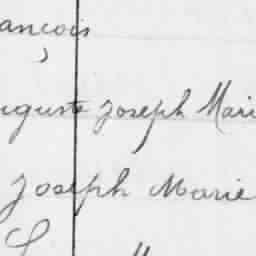 ançois
uguste Joseph Mari
Joseph Marie